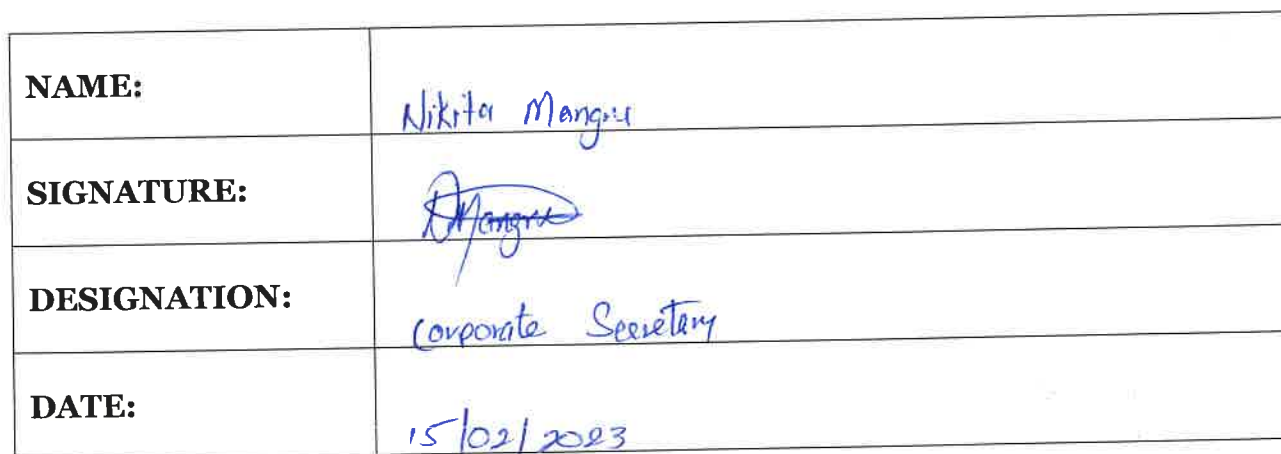 NAME: Nikita Mangru
SIGNATURE: NMangru
DESIGNATION: Corporate Secretary
DATE: 15/02/2023